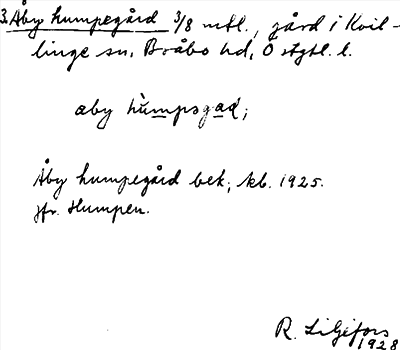 3. Åby humpegård 3/8 mtl., gård i Kvil-
linge sn, Bråbo hd, Östgtl. l.
aby hùmpsgad;
Åby humpegård bek; kb. 1925.
jfr. Humpen.
R. Liljefors
1928